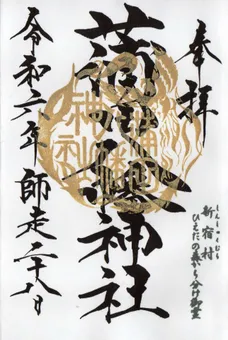 奉拝
しんしゅくむら
新宿村
ひえだの森から分け御霊
蒲田八幡神社
蒲田八幡神社
令和六年 師走二十八日